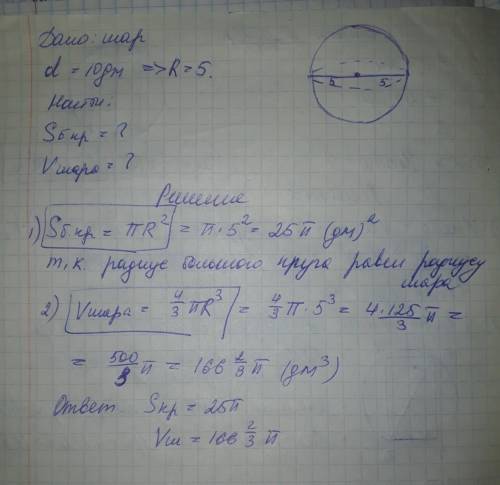 Дано: шар
d = 10дм => R = 5.
Найти:
Sб.кр = ?
Vшара = ?
5 5
Решение
1) Sб.кр = πR² = π·5² = 25π (дм)²
т.к. радиус большого круга равен радиусу шара
2) Vшара = 4/3 πR³ = 4/3 π·5³ = 4·125/3 π =
= 500/3 π = 166 2/3 π (дм³)
Ответ Sкр = 25π
Vш = 166 2/3 π